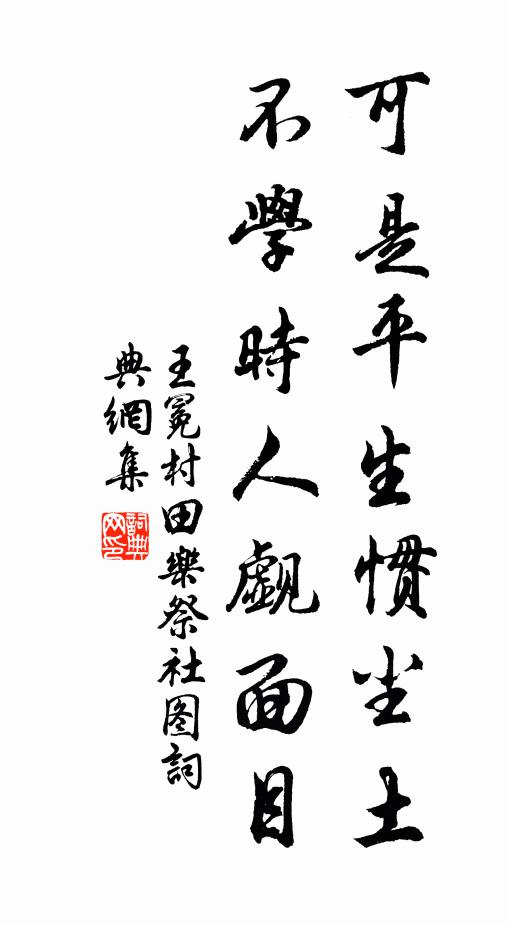 可是平生慣尘土
不學時人覷面目
王冕村田樂祭社图詞
典網集
詞典網印